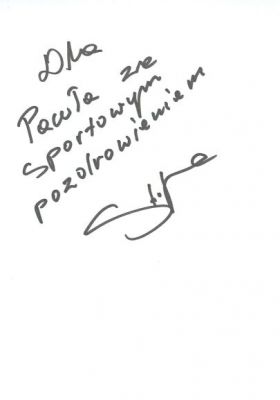 Dla
Pawła ze
sportowym
pozdrowieniem